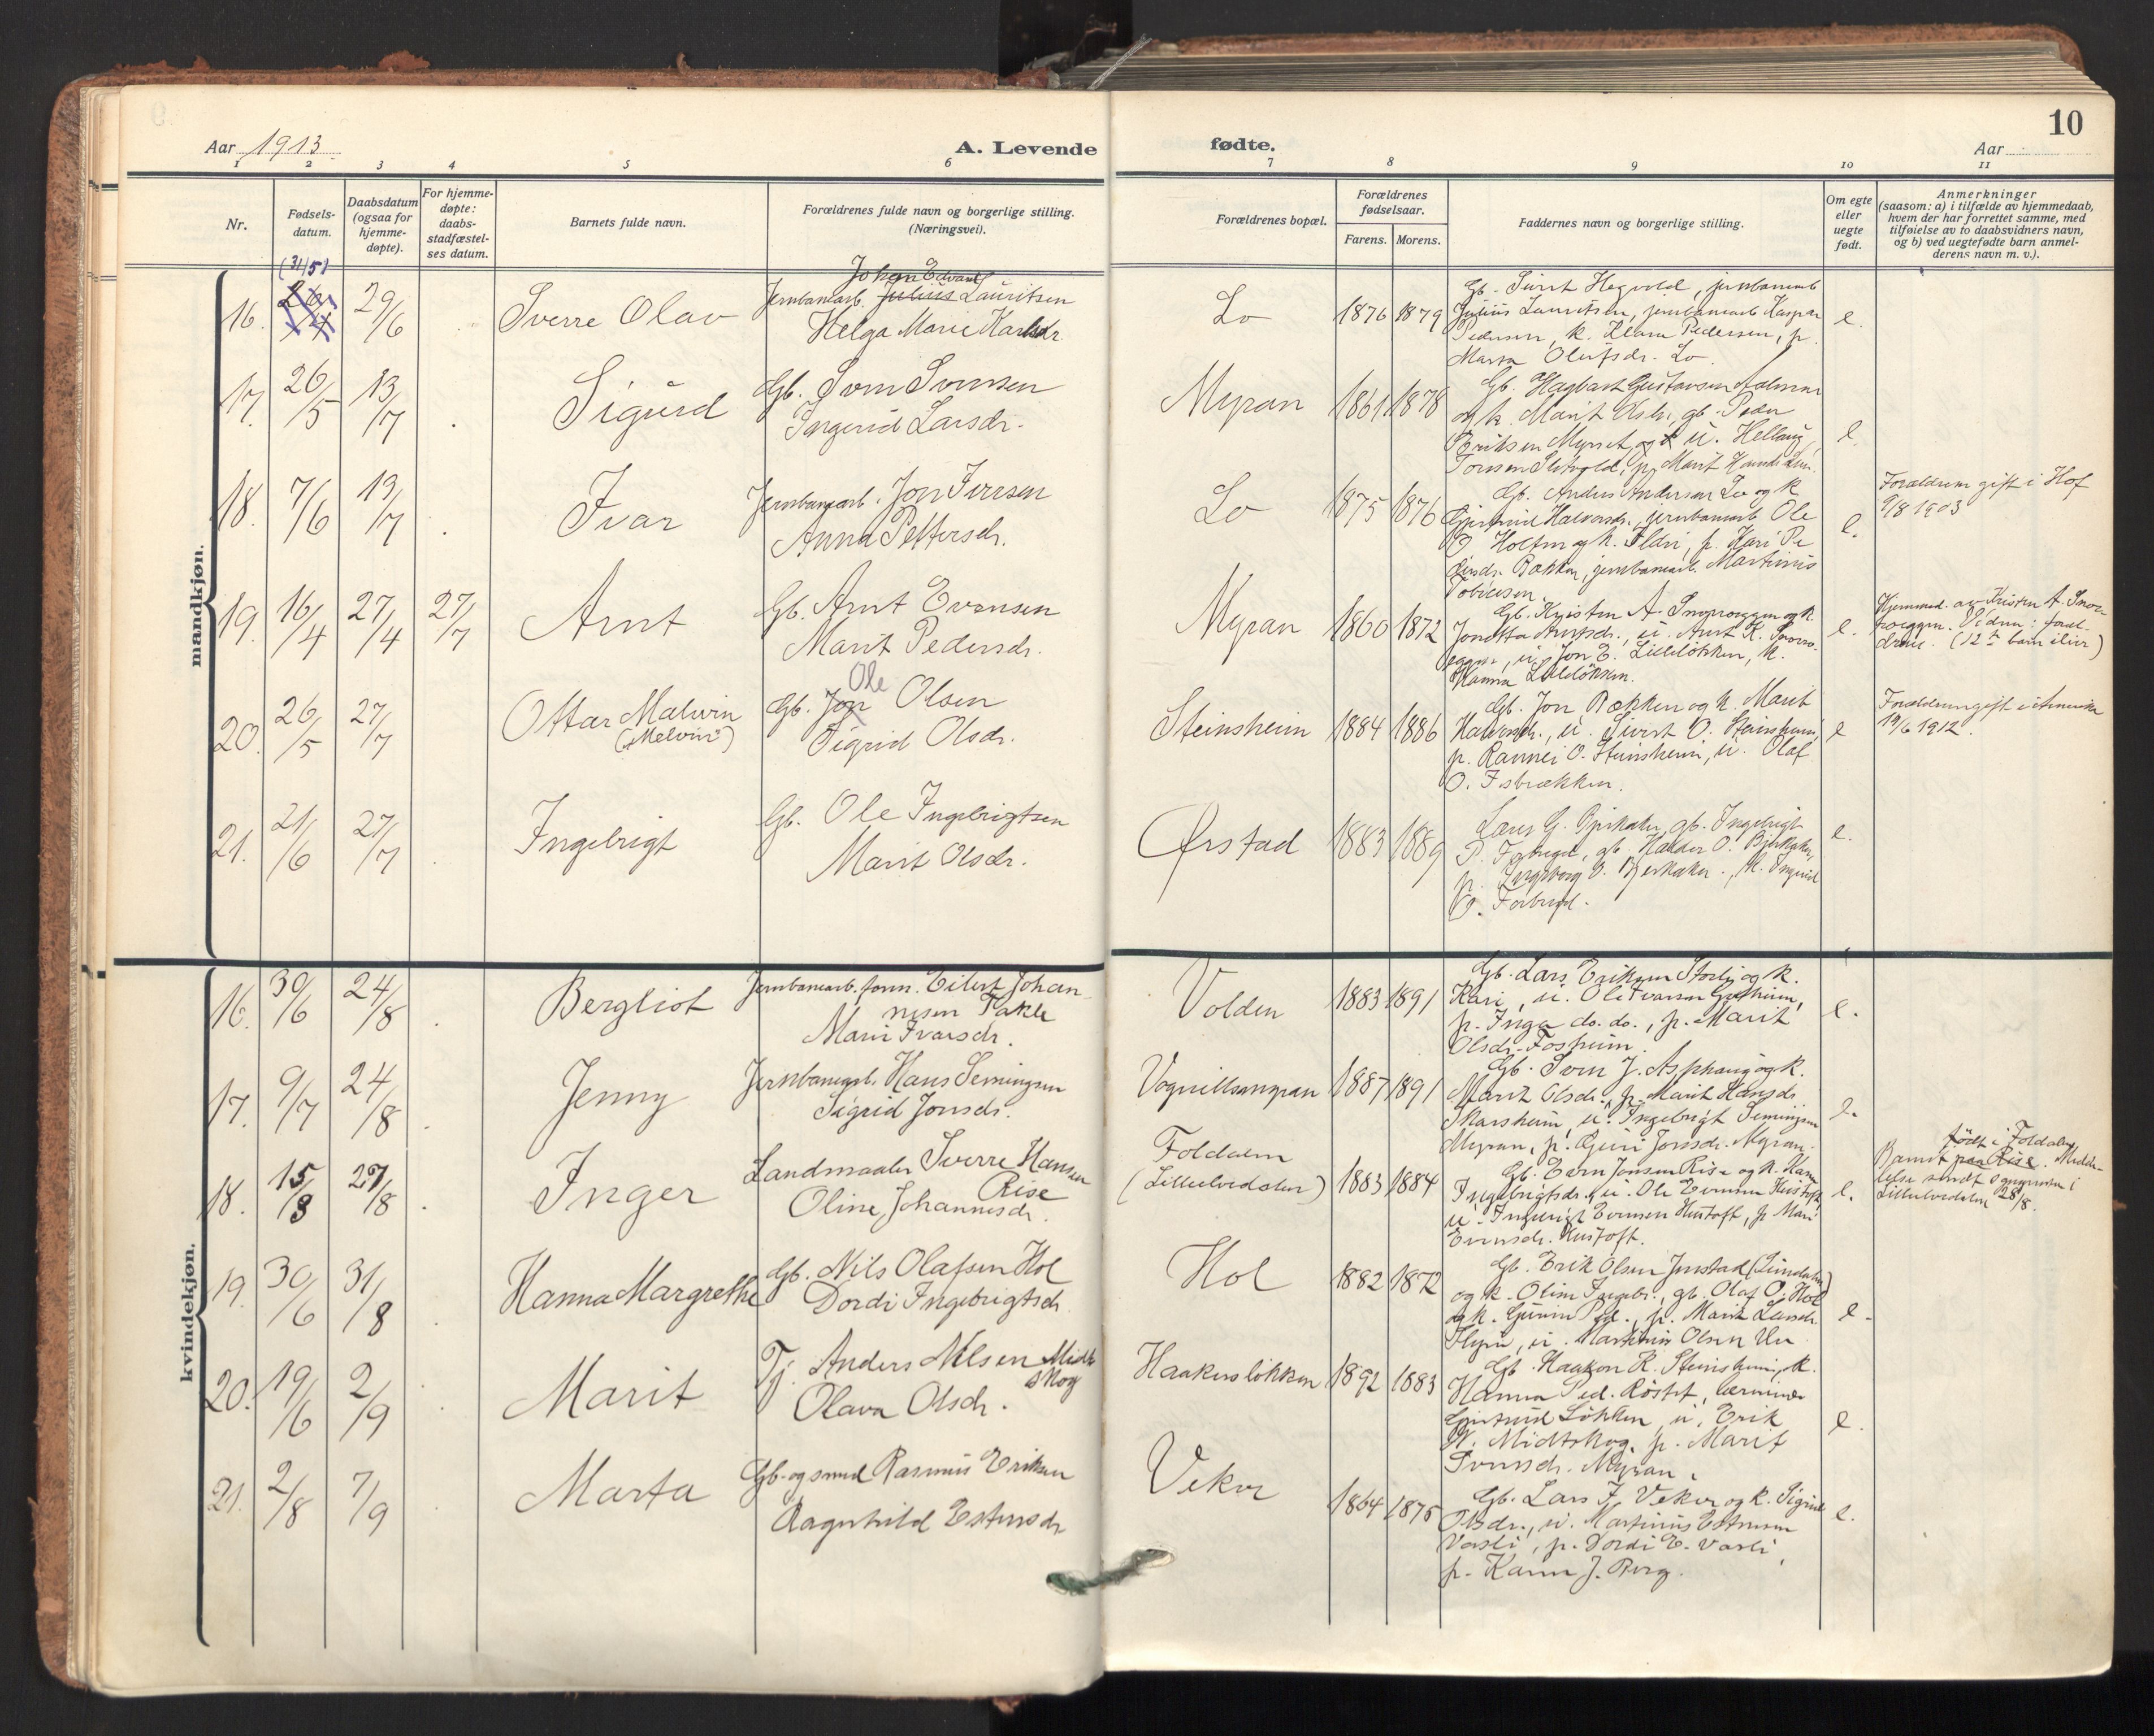 10
Aar 1913
A. Levende
fødte.
Aar
1 2 3 4 5 6 7 8 9 10 11
Nr.
Fødsels-
datum.
Daabsdatum
(ogsaa for
hjemme-
døpte).
For hjemme-
døpte:
daabs-
stadfæstel-
ses datum.
Barnets fulde navn.
Forældrenes fulde navn og borgerlige stilling.
(Næringsvei).
Forældrenes bopæl.
Forældrenes
fødselsaar.
Farens. Morens.
Faddernes navn og borgerlige stilling.
Om egte
eller
uegte
født.
Anmerkninger
(saasom: a) i tilfælde av hjemmedaab,
hvem der har forrettet samme, med
tilføielse av to daabsvidners navn,
og b) ved uegtefødte barn anmel-
derens navn m. v.).
mandkjøn.
16. (31/5) 29/6 Sverre Olav
Johan Edvard
Jernbanearb. Julius Lauritsen
Helga Marie Karlsdr.
Lo 1876 1879
Gb. Sivert Hegvold, jernbanearb
Julius Lauritsen, jernbanearb Kaspar
Pedersen, k. Klara Pedersen, p.
Marta Olufsdr. Lo.
e.
17. 26/5 13/7 Sigurd
Gb. Sven Svensen
Ingerid Larsdr.
Myran 1861 1878
Gb. Hagbart Gustavsen
og k. Marit gb. Peder
Eriksen og u.
Marit
e.
18. 7/6 13/7 Ivar
Jernbanearb. Jon Iversen
Anna Pettersdr.
Lo 1875 1876
Gb. Anders Andersen Lo og k
Gjertrud Halvorsdr., jernbanearb Ole
O. Holten og k. Ildri, p. Kari Pe
dersdr. Bakken, jernbanearb. Martinus
Tobiesen.
e.
Forældrene gift i Hof
9/8 1903
19. 16/4 27/4 27/7 Arnt
Gb. Arnt Evensen
Marit Pedersdr.
Myran 1860 1872
Gb. Kristen A. og k.
Jonetta Arntsdr., u. Arnt K.
u. Jon E. Lilleløkken, k.
Hanna Lilleløkken.
e.
Hjemmed. av Kristen A.
Vidner: foræl-
drene. (12te barn ilive)
20. 26/5 27/7 Ottar Malvin
(Melvin)
Ole
Gb. Jon Olsen
Sigrid Olsdr.
Steinsheim 1884 1886
Gb. Jon Bækken og k. Marit
Halvorsdr., u. Sivert O. Steinsheim,
p. Rannei O. Steinsheim, u. Olaf
O. Isbrækken.
e
Forældrene gift i Amerika
19/6 1912.
21. 21/6 27/7 Ingebrigt
Gb. Ole Ingebrigtsen
Marit Olsdr.
Ørstad 1883 1889
Lars G. Bjerkaker, gb. Ingebrigt
P. gb. Haldor O. Bjerkaker,
p. Ingeborg O. Bjerkaker, k. Ingrid
O.
e.
kvindekjøn.
16. 30/6 24/8 Bergliot
Jernbanearb. form. Eilert Johan-
nesen Takle
Marie Ivarsdr.
Volden 1883 1891
Gb. Lars Eriksen Storli og k.
Kari, u. Ole Ivarsen
p. Inga do. do., p. Marit
Olsdr. Fosheim.
e.
17. 9/7 24/8 Jenny
Jernbanearb. Hans Semingsen
Sigrid Jonsdr.
Vognillsmyran 1887 1891
Gb. Sven J. Asphaug og k.
Marit Olsdr., p. Marit Hansdr.
Skarsheim, u. Ingebrigt Semingsen
Myran, p. Guri Jonsdr. Myran.
e.
18. 15/8 27/8 Inger
Landmaaler Sverre Hansen
Rise
Oline Johannesdr.
Foldalen
(Lilleelvedalen) 1883 1884
Gb. Even Jonsen Rise og k.
Ingebrigtsdr., u. Ole Evensen Hustoft,
u. Ingebrigt Evensen Hustoft, p. Mari
Evensdr. Hustoft.
e.
født i Foldalen
Barnet paa Rise. Medde-
lelse sendt sogneprest i
Lilleelvedalen 28/8.
19. 30/6 31/8 Hanna Margrethe
Gb. Nils Olafsen Hol
Dordi Ingebrigtsdr.
Hol 1882 1872
Gb. Erik Olsen (Sundalen)
og k. Oline Ingebr., gb. Olaf O. Hol
og k. p. Marit Larsdr.
u. Martinus Olsen
e.
20. 19/6 2/9 Marit
Tj. Anders Nilsen Midt-
skog
Olava Olsdr.
Haakensløkken 1892 1883
Gb. Haakon K. Steinsheim, k.
Hanna Ped. Røstet, lærerinde
Gjertrud Løkken, u. Erik
N. Midtskog, p. Marit
Svensdr. Myran.
e.
21. 2/8 7/9 Marta
Gb. og smed Rasmus Eriksen
Ragnhild Estensdr
Vekve 1864 1875
Gb. Lars J. Vekve og k. Sigrid
Olsdr., u. Martinus Estensen
Vasli, p. Dordi E. Vasli,
p. Karen J. Berg.
e.